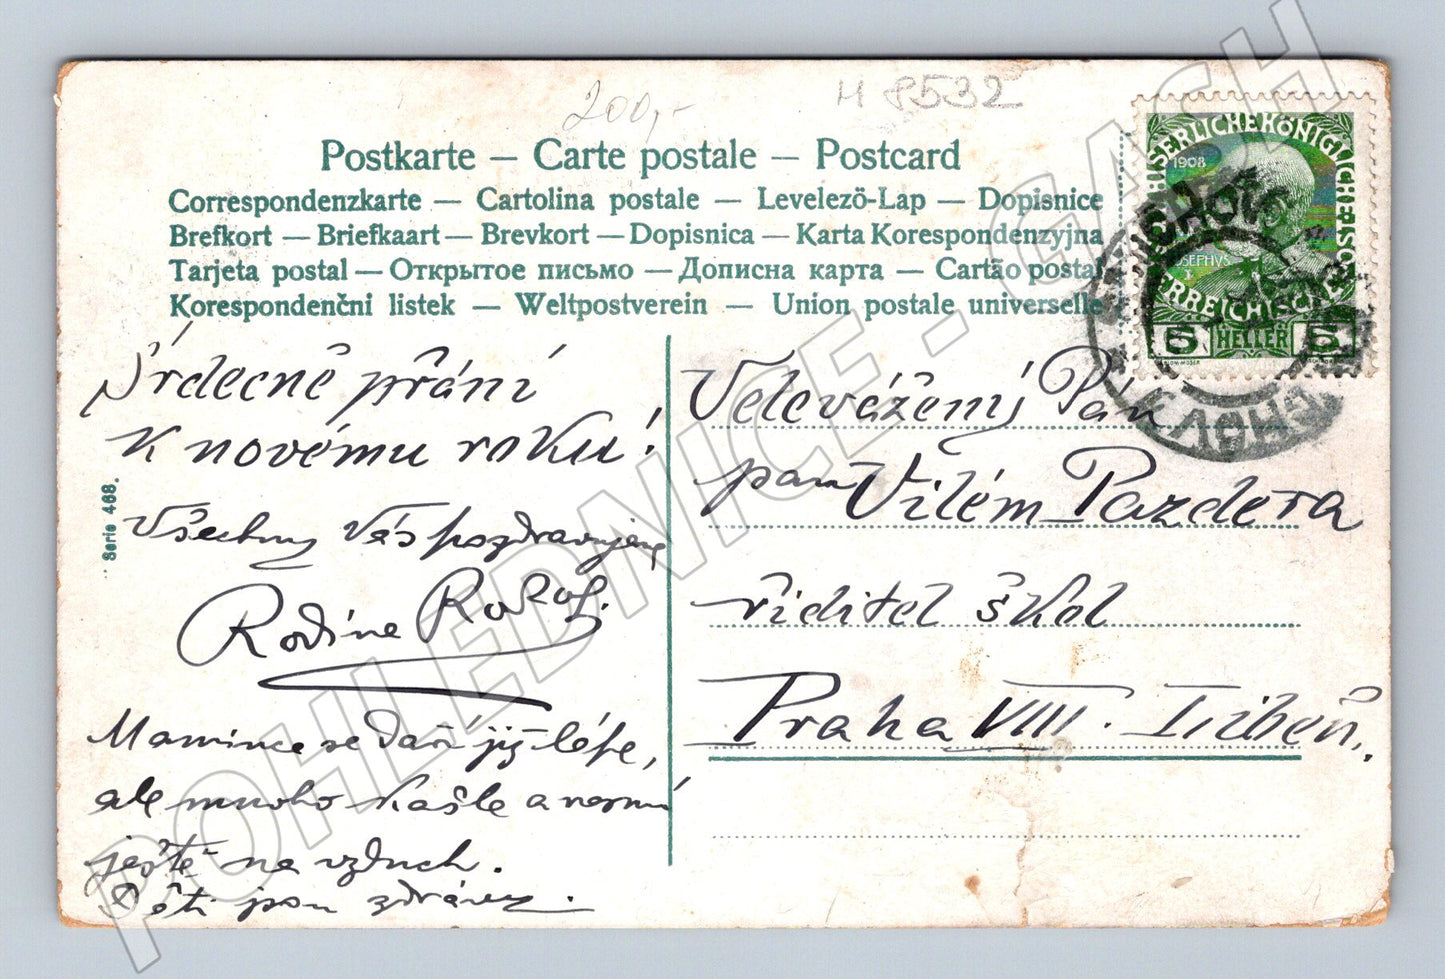 200,-
H 8532
Postkarte – Carte postale – Postcard
Correspondenzkarte — Cartolina postale — Levelezö-Lap — Dopisnice
Brefkort — Briefkaart — Brevkort — Dopisnica — Karta Korespondenzyjna
Tarjeta postal — Открытое письмо — Дописна карта — Cartão postal
Korespondenčni listek — Weltpostverein — Union postale universelle
1908
5 HELLER 5
Srdečné přání
k novému roku!
Všechny Vás pozdravuje
Rodina
Mamince se daří již lépe,
ale mnoho kašle a nesmí
ještě na vzduch.
Děti jsou zdrávy.
Serie 468.
Velevážený Pán
pan Vilém Pazdera
řiditel škol
Praha VIII. Libeň.
POHLEDNICE - GASH